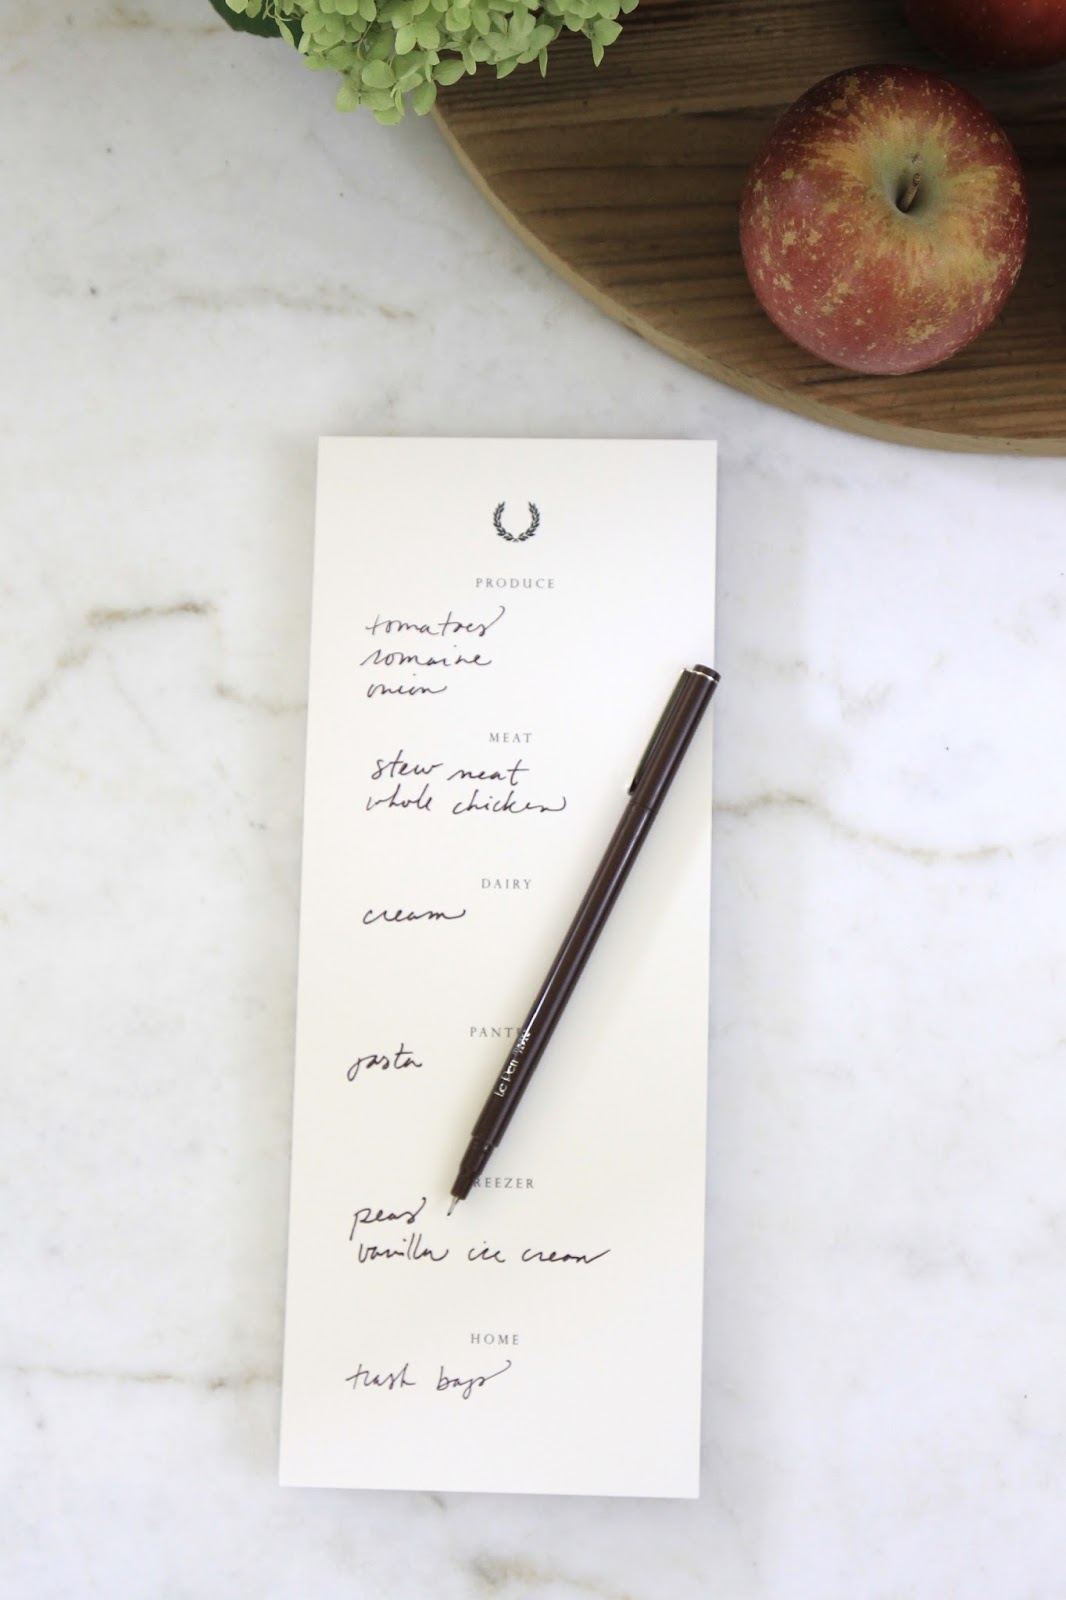 PRODUCE
tomatoes
romaine
onion
MEAT
stew meat
whole chicken
DAIRY
cream
PANT
pasta
REEZER
peas
vanilla ice cream
HOME
trash bags
Le Pen